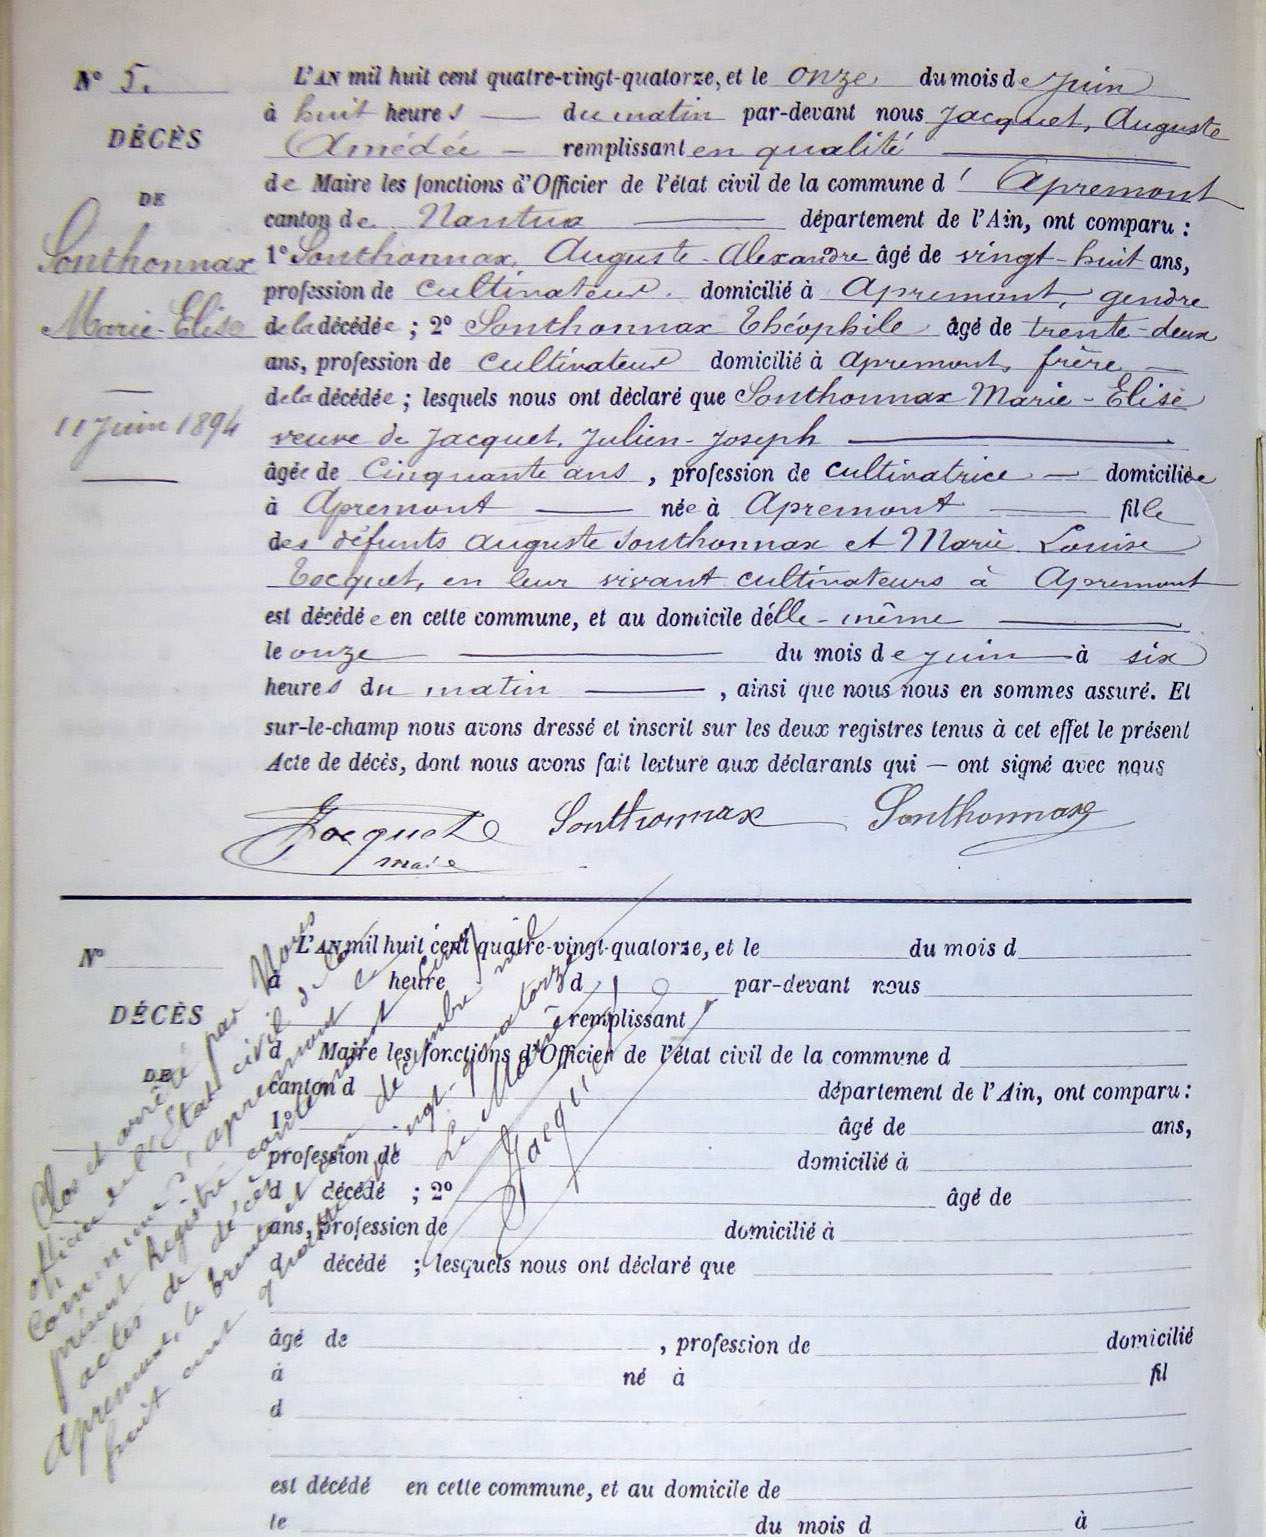 N° 5.
DÉCÈS
DE
Sonthonnax
Marie-Elise
11 Juin 1894
L'AN mil huit cent quatre-vingt-quatorze, et le onze du mois de Juin
à huit heures — du matin par-devant nous Jacquet, Auguste
Amédée — remplissant en qualité —
de Maire les fonctions d'Officier de l'état civil de la commune d' Apremont
canton de Nantua — département de l'Ain, ont comparu :
1° Sonthonnax, Auguste-Alexandre âgé de vingt-huit ans,
profession de cultivateur. domicilié à Apremont, gendre
de la décédée ; 2° Sonthonnax Théophile âgé de trente-deux
ans, profession de cultivateur domicilié à Apremont, frère —
de la décédée ; lesquels nous ont déclaré que Sonthonnax Marie-Elise
veuve de Jacquet, Julien-Joseph —
âgée de cinquante ans , profession de cultivatrice — domiciliée
à Apremont — née à Apremont — fille
des défunts Auguste Sonthonnax et Marie Louise
Tocquet, en leur vivant cultivateurs à Apremont
est décédée en cette commune, et au domicile d'elle-même —
le onze — du mois de juin — à six
heures du matin — , ainsi que nous nous en sommes assuré. Et
sur-le-champ nous avons dressé et inscrit sur les deux registres tenus à cet effet le présent
Acte de décès, dont nous avons fait lecture aux déclarants qui — ont signé avec nous
Jacquet Sonthonnax Sonthonnax
maire
N°
DÉCÈS
DE
L'AN mil huit cent quatre-vingt-quatorze, et le du mois d
à heure d par-devant nous
remplissant
d Maire les fonctions d'Officier de l'état civil de la commune d
canton d département de l'Ain, ont comparu :
1° âgé de ans,
profession de domicilié à
d décédé ; 2° âgé de
ans, profession de domicilié à
d décédé ; lesquels nous ont déclaré que
âgé de , profession de domicilié
à né à fil
d
est décédé en cette commune, et au domicile de
le du mois d à
Clos et arrêté par Nous
officier de l'Etat civil de la
commune d'apremont le
présent Registre contenant cinq
actes de décès
Apremont, le trente et un décembre mil
huit cent quatre-vingt-quatorze
Le Maire
Jacquet